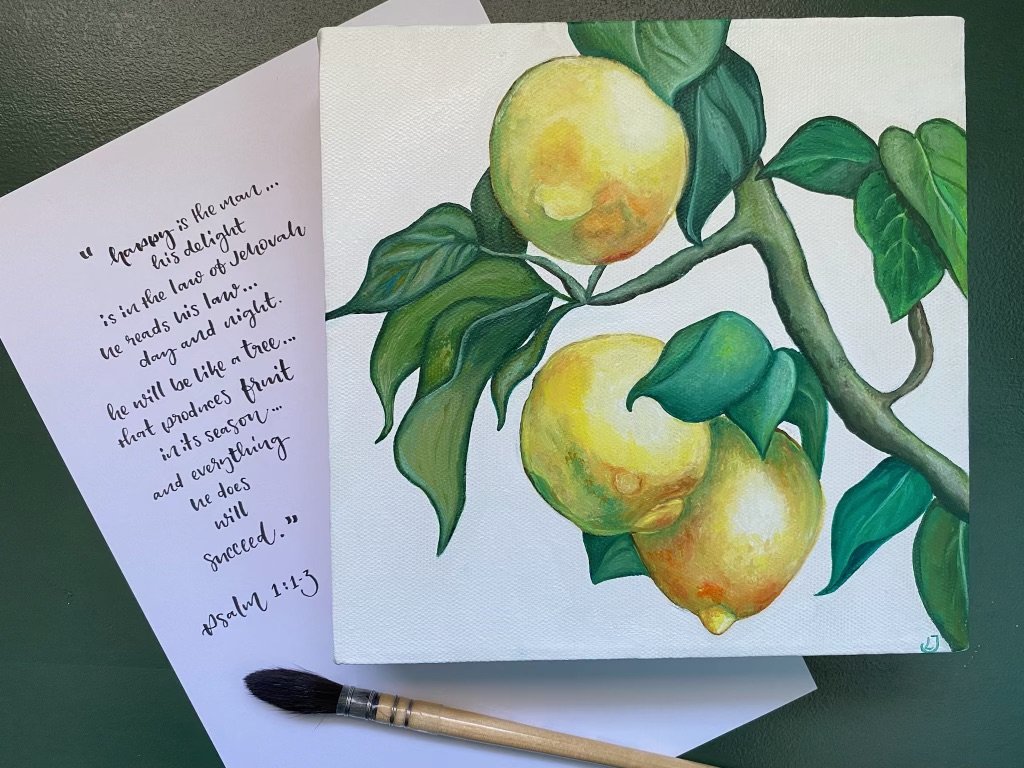 "happy is the man...
his delight
is in the law of Jehovah
he reads his law...
day and night.
he will be like a tree...
that produces fruit
in its season...
and everything
he does
will
succeed."
Psalm 1:1-3